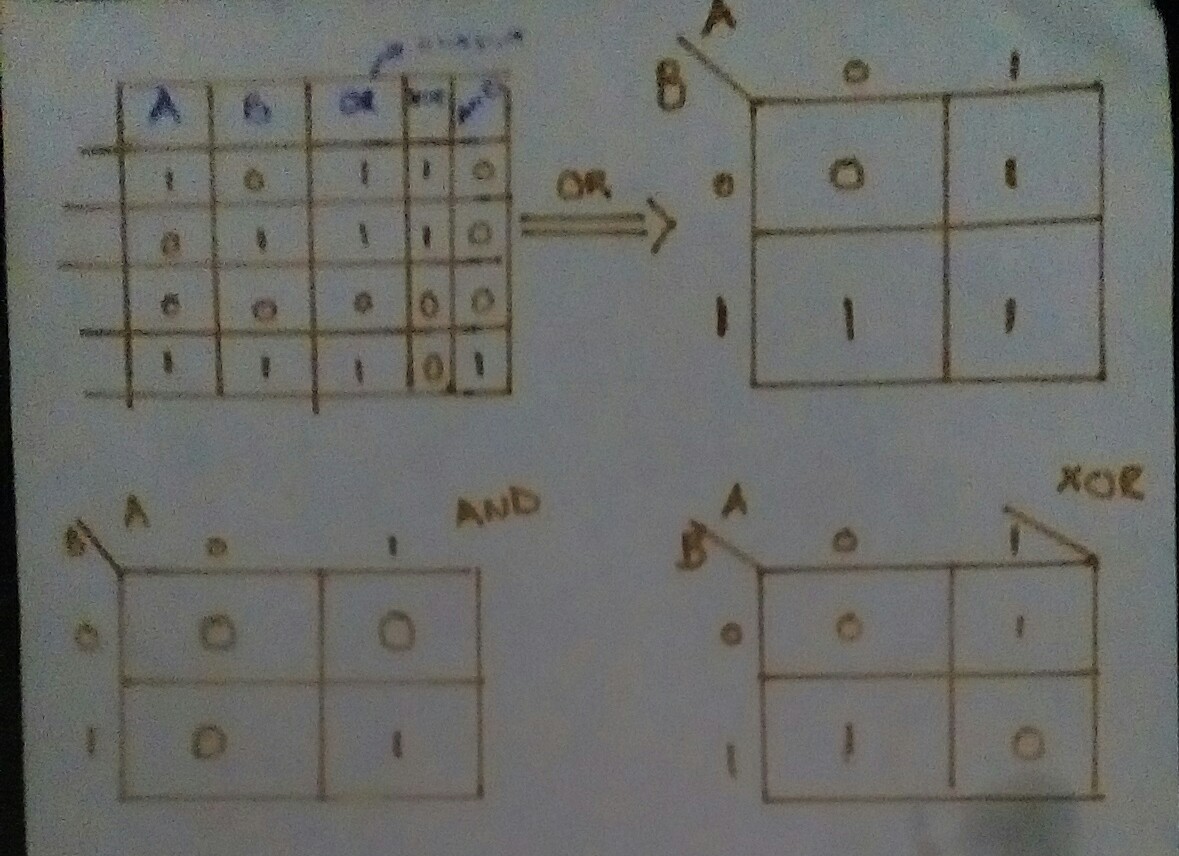 A B OR XOR AND
1 0 1 1 0
0 1 1 1 0
0 0 0 0 0
1 1 1 0 1
OR
A
B 0 1
0 0 1
1 1 1
A AND
B 0 1
0 0 0
1 0 1
A XOR
B 0 1
0 0 1
1 1 0